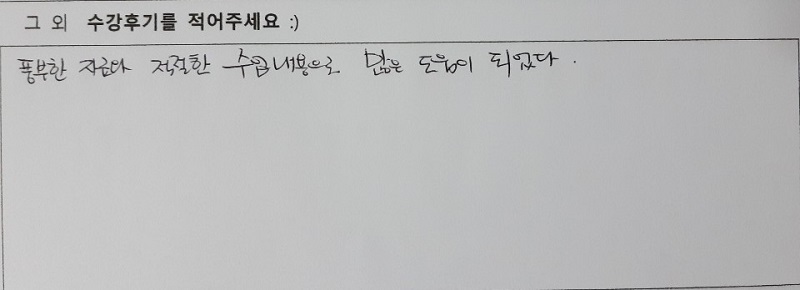 그 외 수강후기를 적어주세요 :)
풍부한 자료와 적절한 수업내용으로 많은 도움이 되었다.